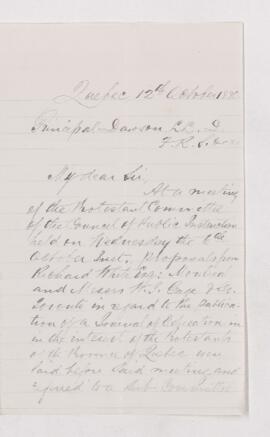 Quebec, 12th October 188
Principal Dawson LL.D
F.R.S. &c
My dear Sir,
At a meeting
of the Protestant Committee
of the Council of Public Instruction
held on Wednesday the 6th
October Inst, proposals from
Richard White Esq: Montreal
and Messrs W. J. Gage & Co.
Toronto in regard to the publica-
tion of a Journal of Education in
in the interest of the Protestants
of the Province of Quebec were
laid before said meeting and
referred to a Sub-Committee